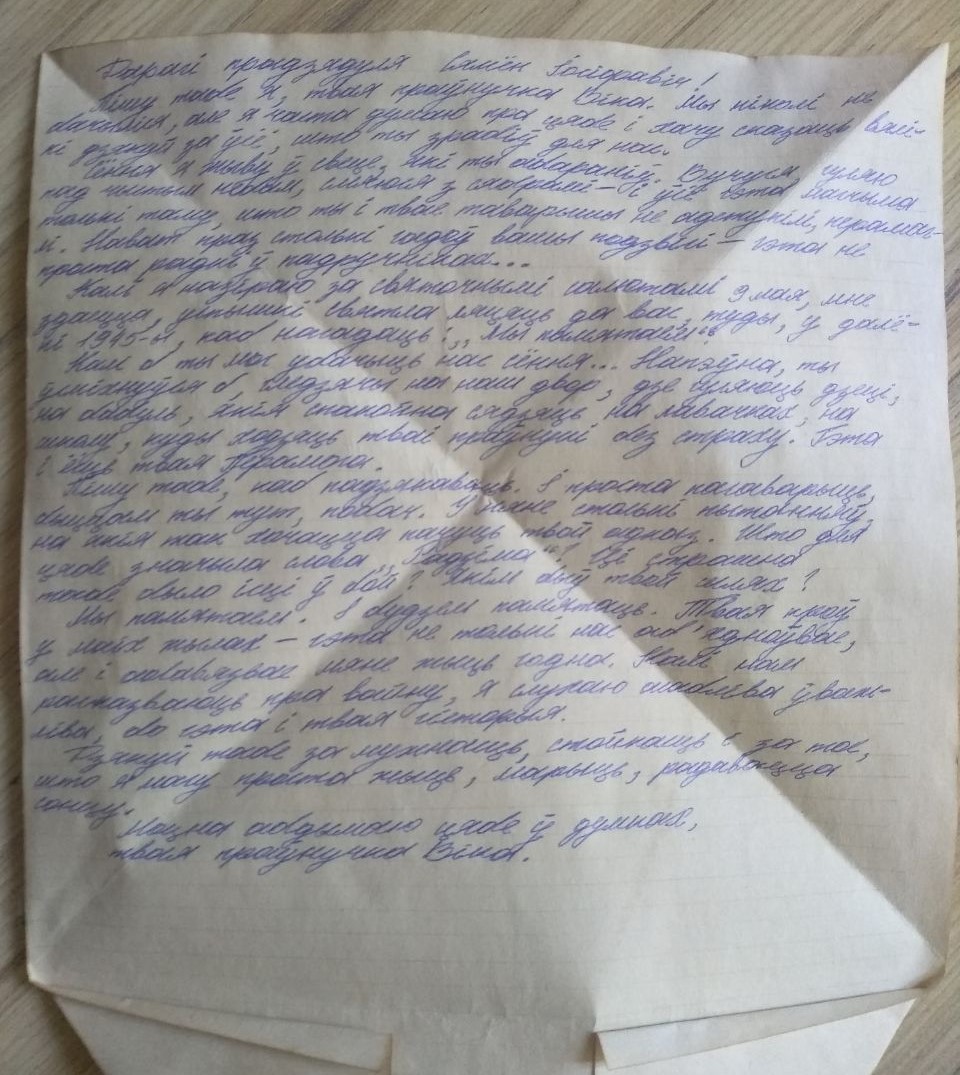 Дарагі прадзядуля Сямён
Пішу табе я, твая праўнучка Віка. Мы ніколі не
бачыліся, але я часта думаю пра цябе і хачу сказаць вялі-
кі дзякуй за ўсё, што ты зрабіў для нас.
Сёння я жыву ў свеце, які ты абараніў. Вучуся, гуляю
пад чыстым небам, смяюся з сябрамі – і ўсё гэта магчыма
толькі таму, што ты і твае таварышы не адступілі, перамаг-
лі. Нават праз столькі гадоў вашы подзвігі – гэта не
проста радкі ў падручніках...
Калі я назіраю за святочнымі салютамі 9 мая, мне
здаецца, успышкі святла ляцяць да вас, туды, у далё-
кі 1945-ы, каб нагадаць: „Мы памятаем!“
Калі б ты мог убачыць нас сёння... Напэўна, ты
ўсміхнуўся б, гледзячы на наш двор, дзе гуляюць дзеці,
на бабуль, якія спакойна сядзяць на лавачках, на
школу, куды ходзяць твае праўнукі без страху. Гэта
і ёсць твая Перамога.
Пішу табе, каб падзякаваць. І проста пагаварыць,
быццам ты тут, побач. У мяне столькі пытанняў,
на якія так хочацца пачуць твой адказ. Што для
цябе значыла слова „Радзіма“? Ці страшна
табе было ісці ў бой? Якім быў твой шлях?
Мы памятаем. І будзем памятаць. Твая кроў
у маіх жылах – гэта не толькі нас аб'ядноўвае,
але і абавязвае мяне жыць годна. Калі нам
расказваюць пра вайну, я слухаю асабліва ўваж-
ліва, бо гэта і твая гісторыя.
Дзякуй табе за мужнасць, стойкасць і за тое,
што я магу проста жыць, марыць, радавацца
сонцу.
Моцна абдымаю цябе ў думках,
твая праўнучка Віка.